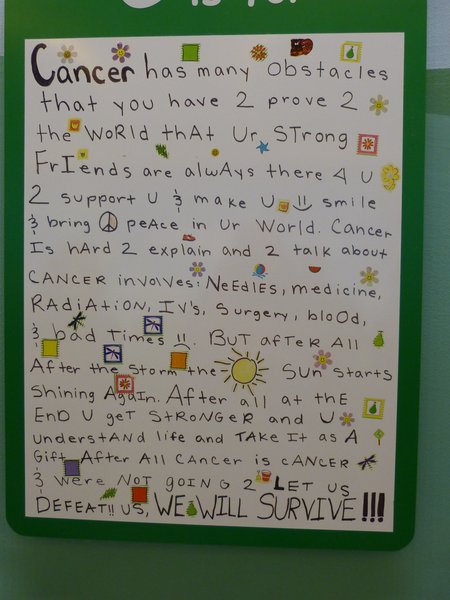 Cancer has many obstacles
that you have 2 prove 2
the WoRlD thAt Ur STrong
FrIends are alwAys there 4 U
2 support U & make U smile
& bring peAce in Ur World. Cancer
Is hArd 2 explain and 2 talk about
CANCER involves: NeEdlEs, medicine,
RAdiAtioN, IV's, Surgery, bloOd,
& bad Times !!. BUT afTeR All
After the storm the SuN starts
Shining AgaIn. After all at thE
EnD U geT STRoNGeR and U
UnderstAND life and TAKE It as A
Gift. After All CAnceR is cANCER
& WeRe NoT goinG 2 LeT us
DEFEAT!! US, WE WILL SURVIVE!!!